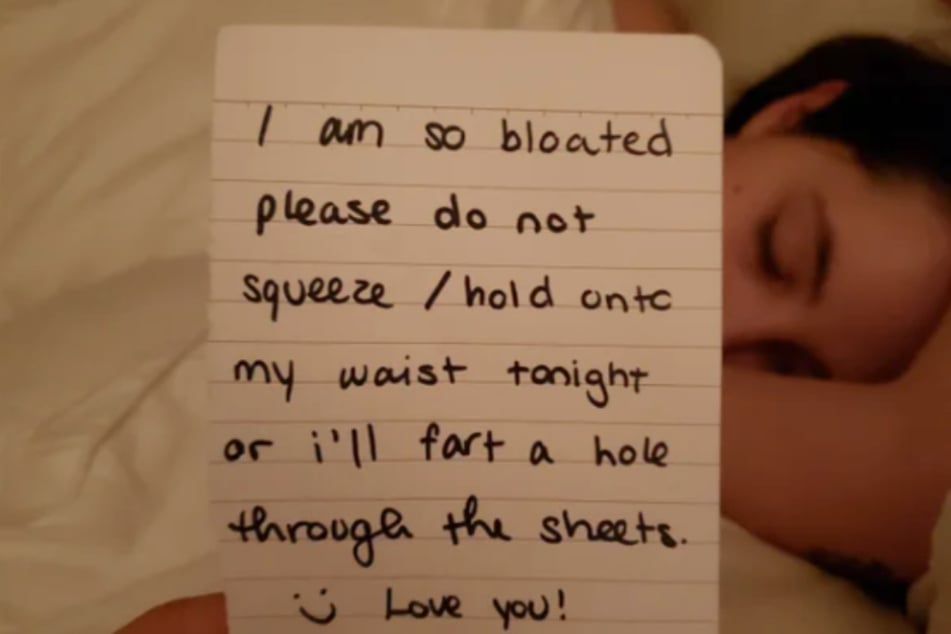 I am so bloated
please do not
squeeze / hold onto
my waist tonight
or i'll fart a hole
through the sheets.
:) Love you!